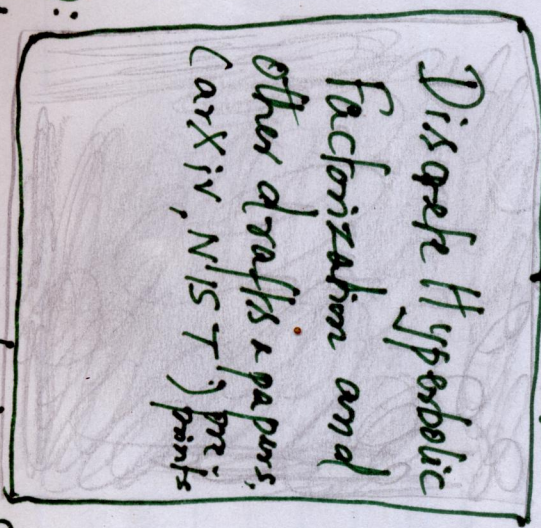 Discrete Hyperbolic
Factorization and
other drafts & papers,
(arXiv, NIST) pre
prints